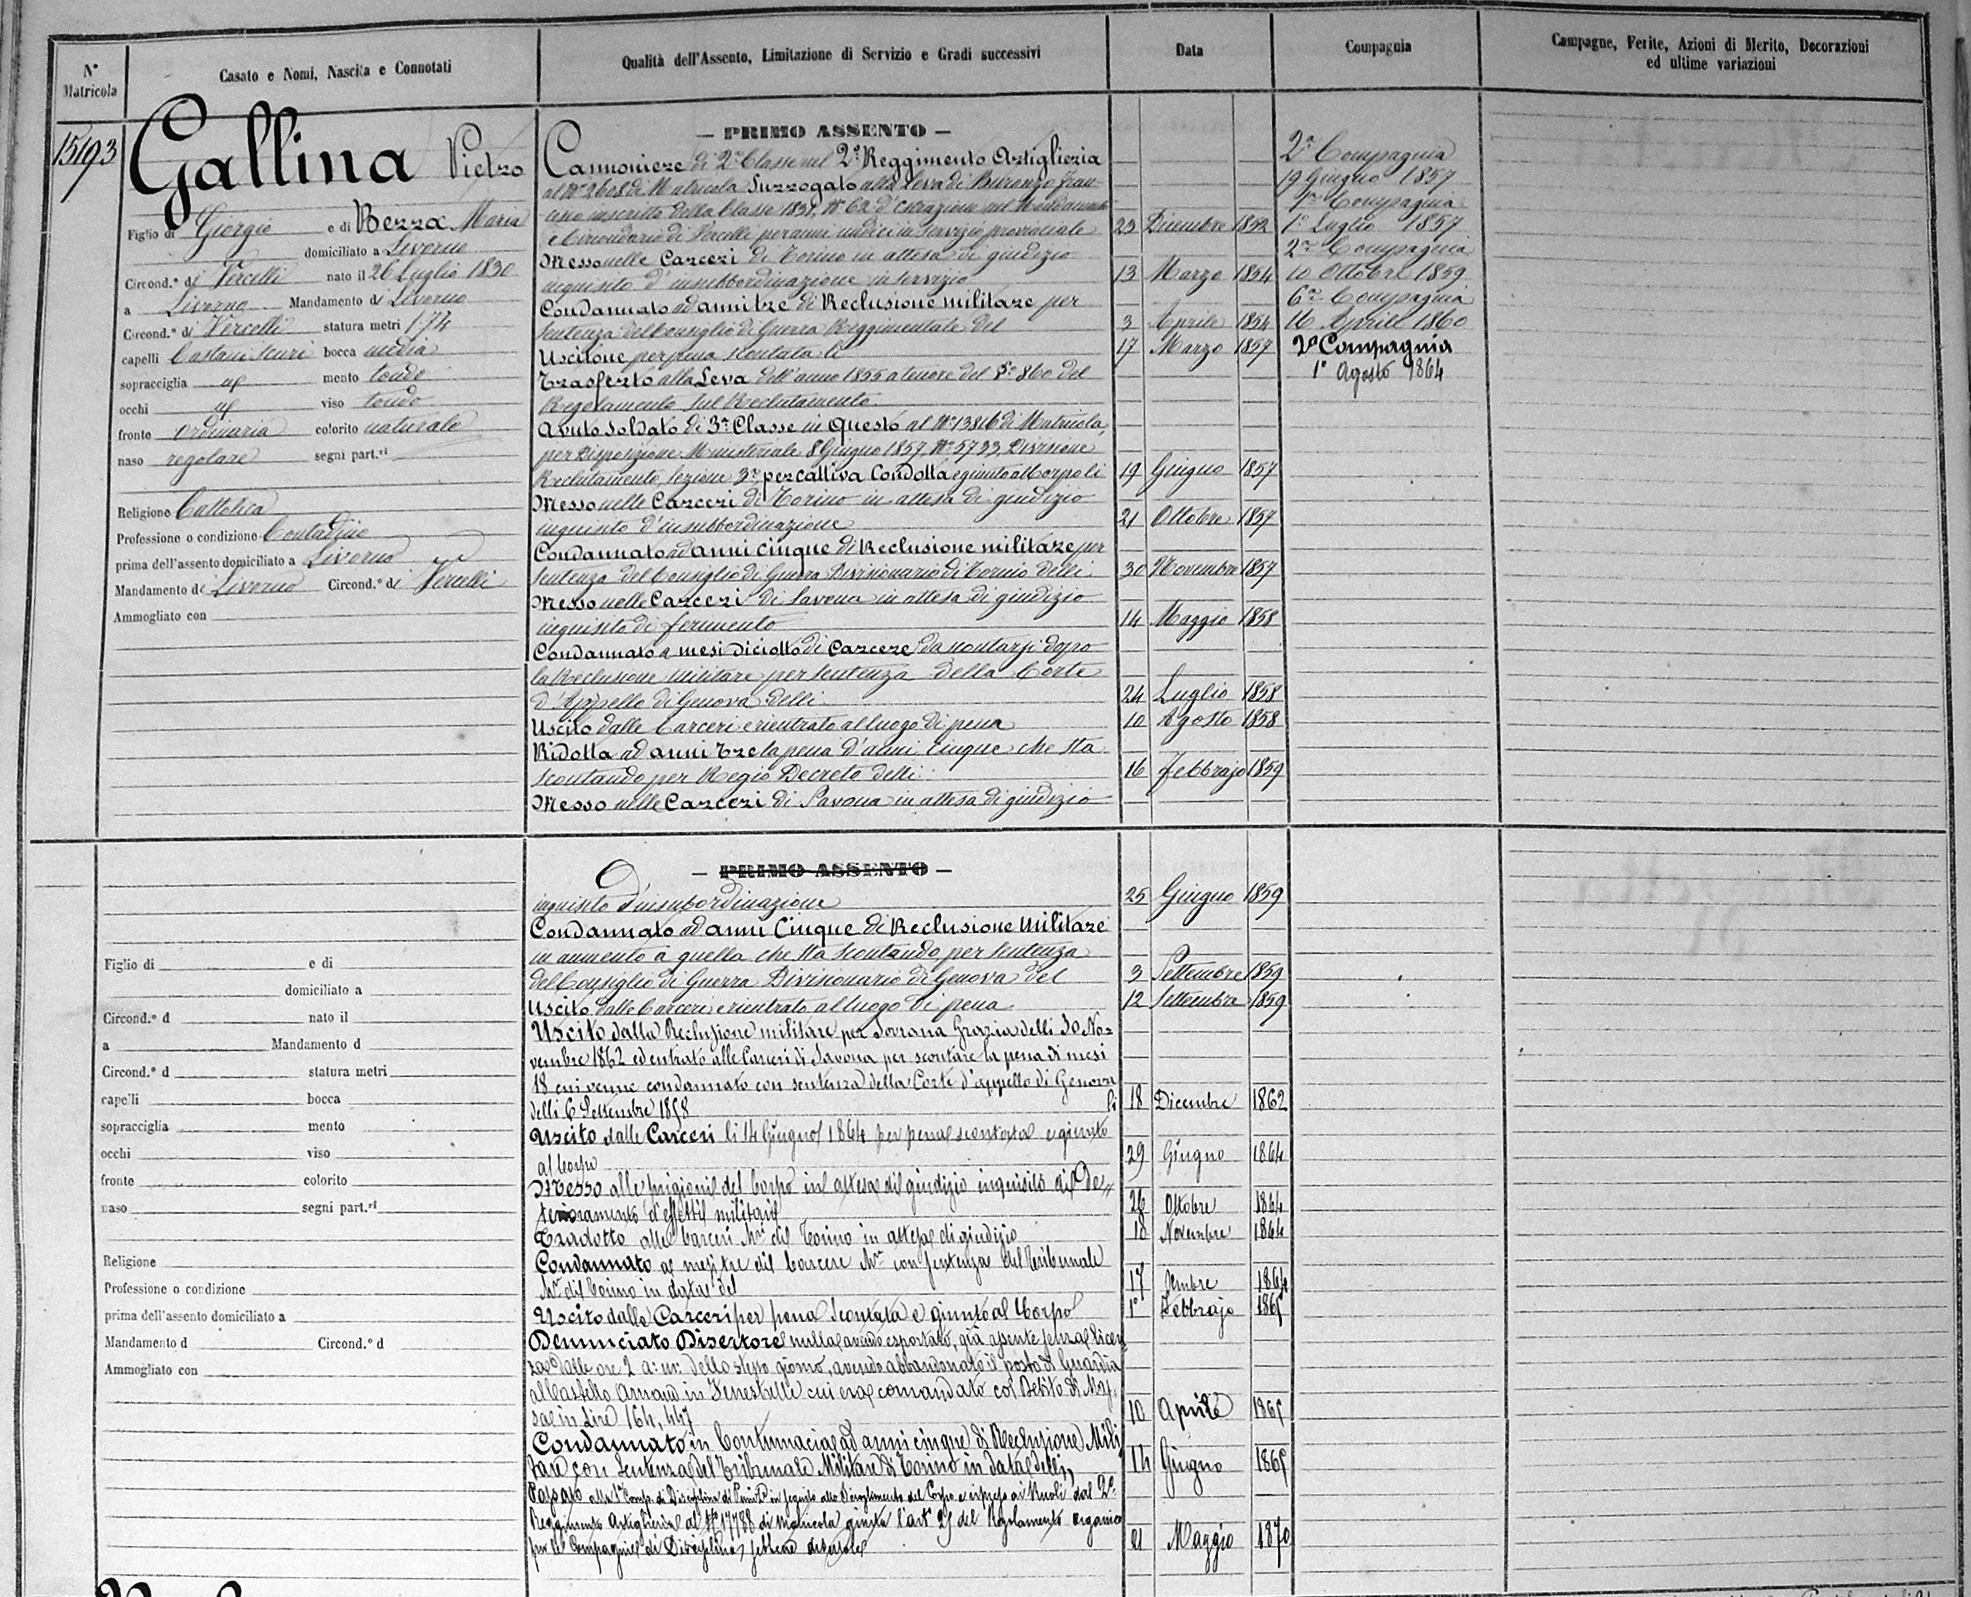 N° Matricola
Casato e Nomi, Nascita e Connotati
Qualità dell'Assento, Limitazione di Servizio e Gradi successivi
Data
Compagnia
Campagne, Ferite, Azioni di Merito, Decorazioni
ed ultime variazioni
15193
Gallina Pietro
Figlio di Giorgio e di Bezza Maria
domiciliato a Livorno
Circond.° di Vercelli nato il 26 Luglio 1830
a Livorno Mandamento di Livorno
Circond.° di Vercelli statura metri 1.74
capelli Castani scuri bocca media
sopracciglia id mento tondo
occhi id viso tondo
fronte ordinaria colorito naturale
naso regolare segni part.ri
Religione Cattolica
Professione o condizione Contadino
prima dell'assento domiciliato a Livorno
Mandamento di Livorno Circond.° di Vercelli
Ammogliato con
— PRIMO ASSENTO —
Cannoniere di 2a Classe nel 2° Reggimento Artiglieria
al N° 2608 di Matricola Surrogato alla Leva di Buronzo Fran-
cesco inscritto della Classe 1831, N° 62 d'estrazione nel Mandamento
e Circondario di Vercelli per anni undici in servizio provinciale 23 Dicembre 1852
Messo nelle Carceri di Torino in attesa di giudizio
inquisito d'insubbordinazione in servizio 13 Marzo 1854
Condannato ad anni tre di Reclusione militare per
sentenza del Consiglio di Guerra Reggimentale del 3 Aprile 1854
Uscitone per pena scontata li 17 Marzo 1857
Trasferto alla Leva dell'anno 1855 a tenore del §° 860 del
Regolamento sul Reclutamento
Avuto soldato di 3a Classe in questo al N° 13816 di Matricola,
per Disposizione Ministeriale 8 Giugno 1857, N° 5733, Divisione
Reclutamento, Sezione 3a per cattiva Condotta e giunto al Corpo li 19 Giugno 1857
Messo nelle Carceri di Torino in attesa di giudizio
inquisito d'insubbordinazione 21 Ottobre 1857
Condannato ad anni cinque di Reclusione militare per
sentenza del Consiglio di Guerra Divisionario di Torino delli 30 Novembre 1857
Messo nelle Carceri di Savona in attesa di giudizio
inquisito di ferimento 14 Maggio 1858
Condannato a mesi diciotto di Carcere da scontarsi dopo
la Reclusione militare per sentenza della Corte
d'Appello di Genova delli 24 Luglio 1858
Uscito dalle Carceri e rientrato al luogo di pena 10 Agosto 1858
Ridotta ad anni tre la pena d'anni cinque che sta
scontando per Regio Decreto delli 16 Febbrajo 1859
Messo nelle Carceri di Savona in attesa di giudizio
2a Compagnia
19 Giugno 1857
Compagnia
1° Luglio 1857
2a Compagnia
10 Ottobre 1859
6a Compagnia
16 Aprile 1860
2a Compagnia
1° Agosto 1864
— PRIMO ASSENTO —
inquisito d'insubordinazione 25 Giugno 1859
Condannato ad anni Cinque di Reclusione Militare
in aumento a quella che sta scontando per sentenza
del Consiglio di Guerra Divisionario di Genova del 3 Settembre 1859
Uscito dalle Carceri e rientrato al luogo di pena 12 Settembre 1859
Uscito dalla Reclusione militare per Sovrana Grazia delli 30 No-
vembre 1862 ed entrato alle Carceri di Savona per scontare la pena di mesi
18 cui venne condannato con sentenza della Corte d'appello di Genova
delli 6 Settembre 1858 li 18 Dicembre 1862
Uscito dalle Carceri li 14 Giugno 1864 per pena scontata e giunto
al Corpo 29 Giugno 1864
Messo alle prigioni del Corpo in attesa di giudizio inquisito di De-
terioramento d'effetti militari 26 Ottobre 1864
Tradotto alle Carceri Mri di Torino in attesa di giudizio 18 Novembre 1864
Condannato a mesi tre di Carcere Mre con sentenza del Tribunale
Mre di Torino in data del 17 1864
Uscito dalle Carceri per pena scontata e giunto al Corpo 1° Febbrajo 1865
Denunciato Disertore nulla avendo esportato, già assente senza licen
za dalle ore 2 a: m: dello stesso giorno, avendo abbandonato il posto di Guardia
al Castello in Fenestrelle cui era comandato col Debito di Mas-
sa in Lire 164,447 10 Aprile 1865
Condannato in Contumacia ad anni cinque di Reclusione Mili
tare con Sentenza del Tribunale Militare di Torino in data delli 14 Giugno 1865
Passato alla 1a Comp. di Disciplina in seguito allo Scioglimento del Corpo e ai Ruoli dal 2°
Reggimento Artiglieria al N° 17788 di Matricola giusta l'art° del Regolamento organico
per le Compagnie di Disciplina, sebbene disertore 21 Maggio 1870
Figlio di e di
domiciliato a
Circond.° d nato il
a Mandamento d
Circond.° d statura metri
capelli bocca
sopracciglia mento
occhi viso
fronte colorito
naso segni part.ri
Religione
Professione o condizione
prima dell'assento domiciliato a
Mandamento d Circond.° d
Ammogliato con